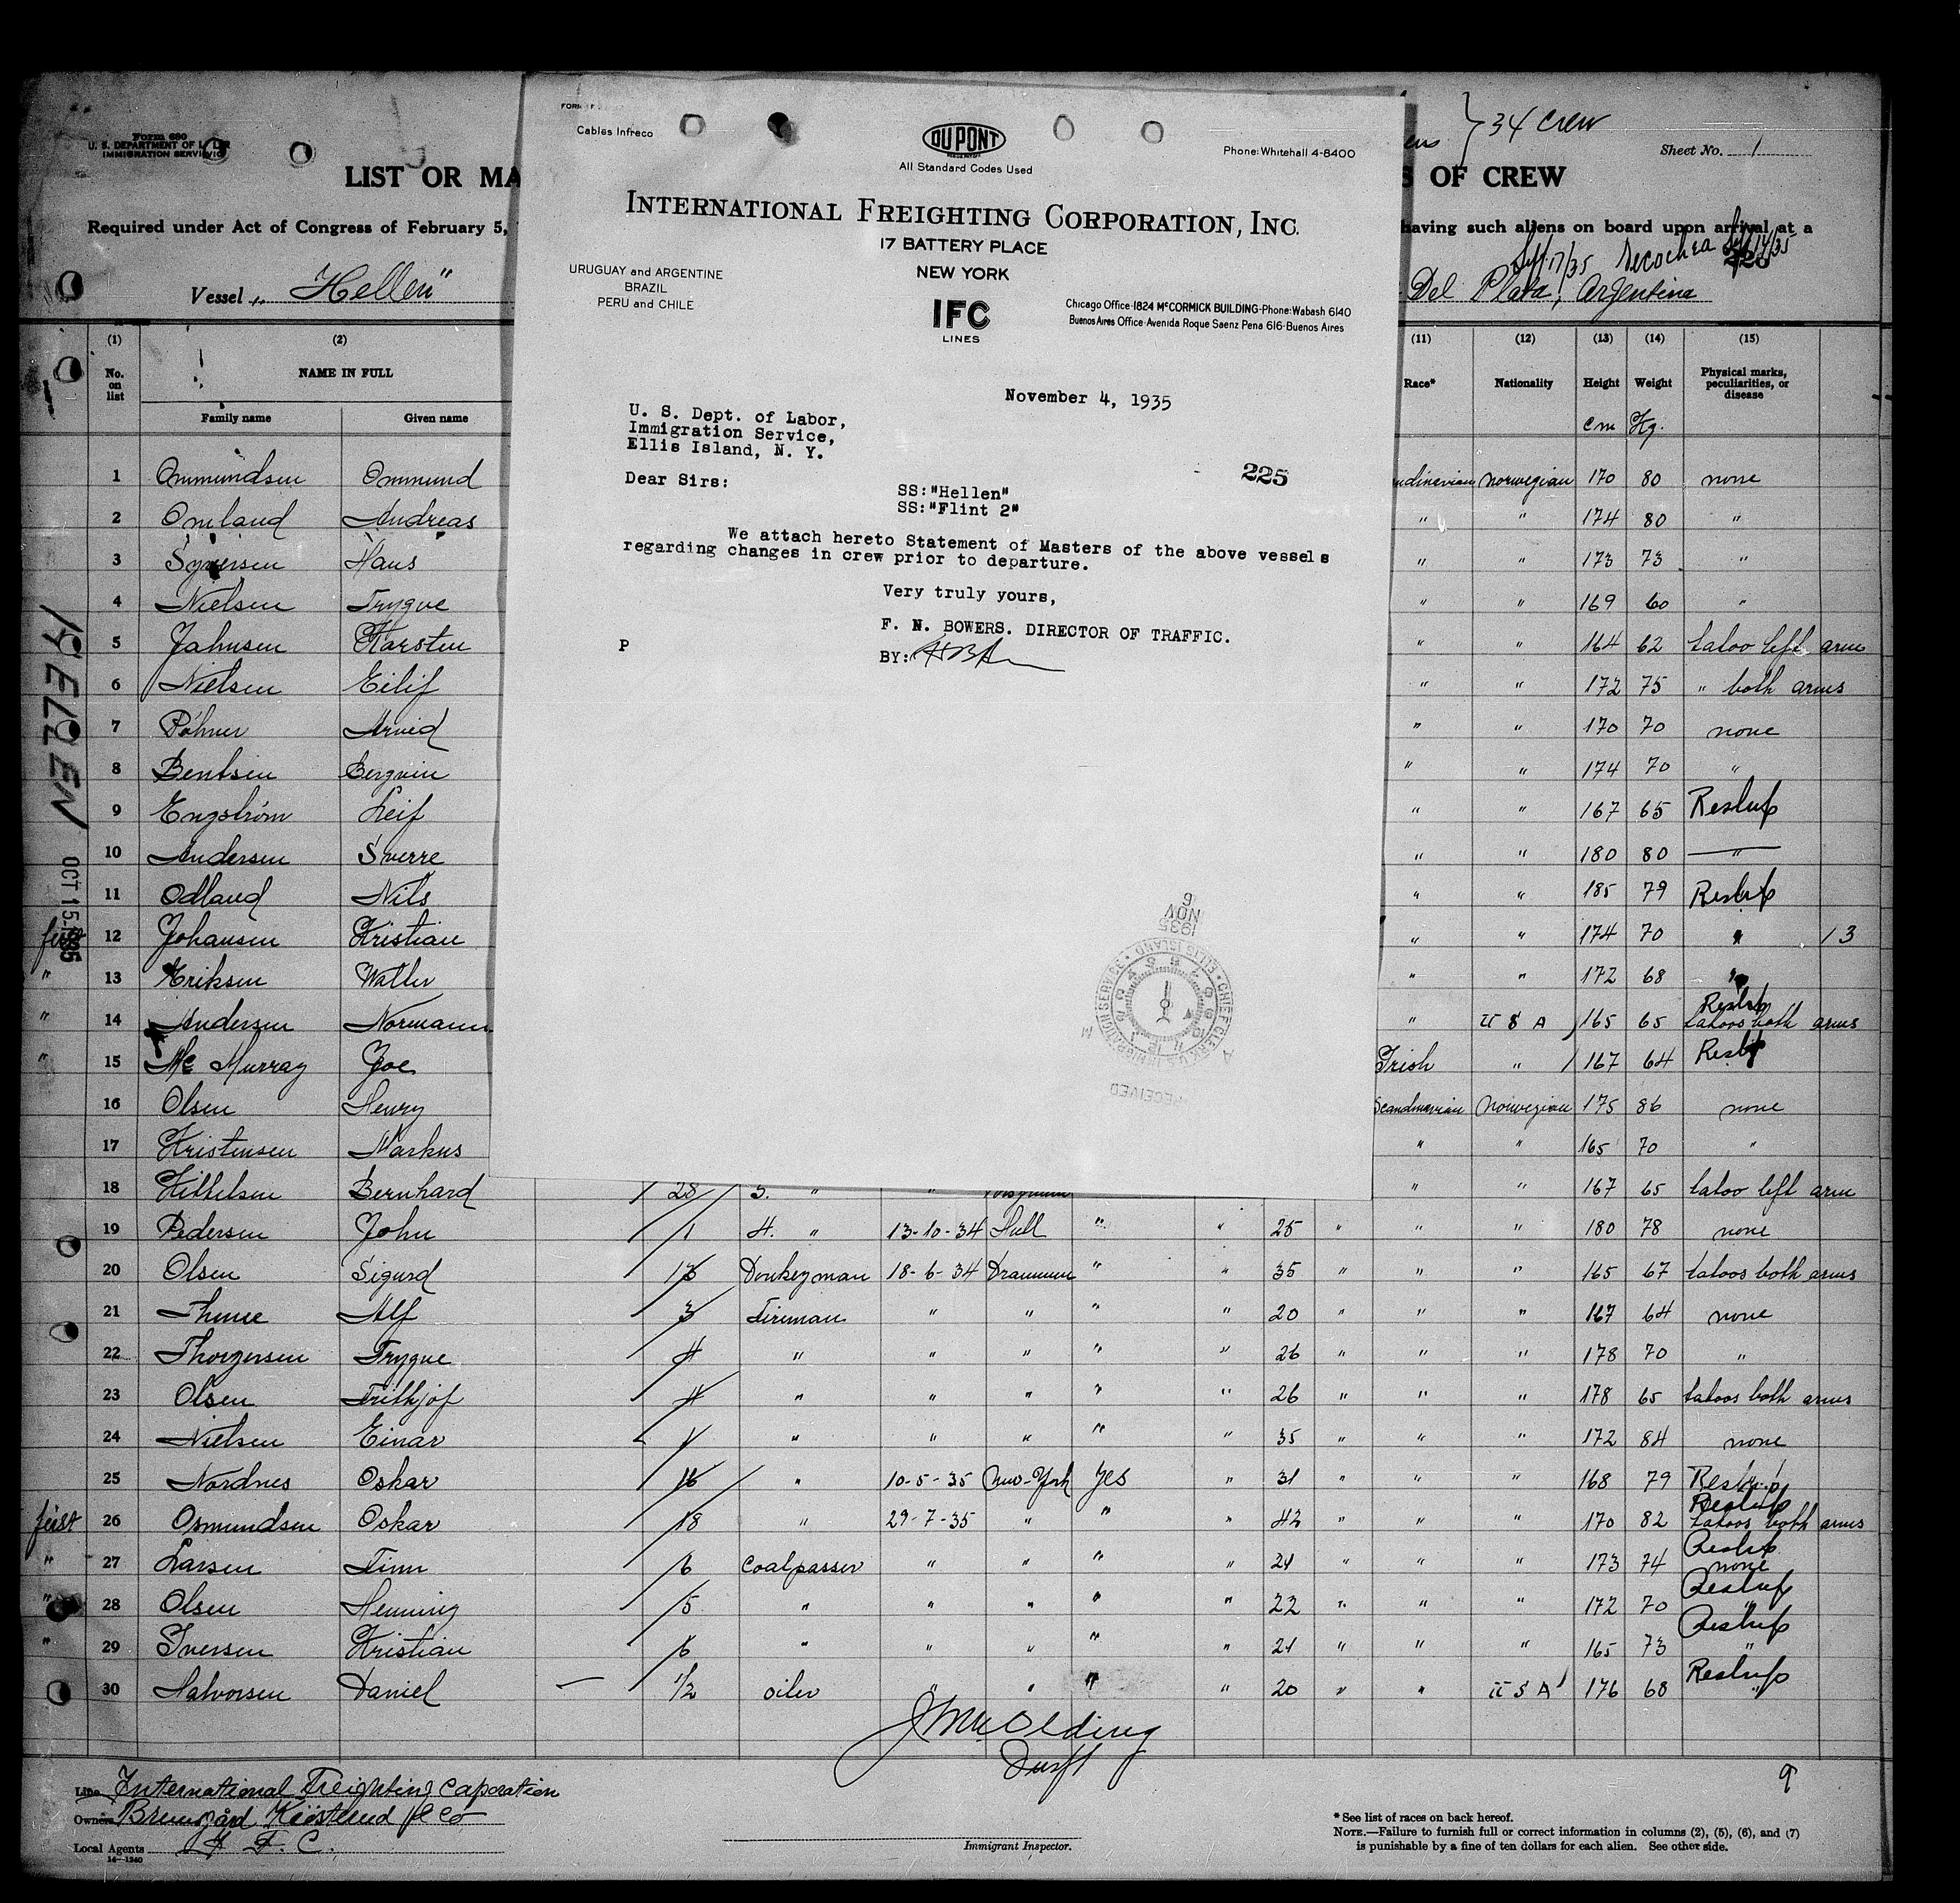 Form 680
U. S. DEPARTMENT OF
IMMIGRATION SERVICE
LIST OR MA
Required under Act of Congress of February 5,
Vessel "Hellen"
34 crew
Sheet No. 1
S OF CREW
having such aliens on board upon arrival at a
Sept 17/35
Del Plata, Argentina
Cables Infreco
DU PONT
All Standard Codes Used
Phone: Whitehall 4-8400
INTERNATIONAL FREIGHTING CORPORATION, INC.
17 BATTERY PLACE
NEW YORK
URUGUAY and ARGENTINE
BRAZIL
PERU and CHILE
IFC
LINES
Chicago Office-1824 McCORMICK BUILDING-Phone: Wabash 6140
Buenos Aires Office-Avenida Roque Saenz Pena 616-Buenos Aires
November 4, 1935
U. S. Dept. of Labor,
Immigration Service,
Ellis Island, N. Y.
225
Dear Sirs:
SS:"Hellen"
SS:"Flint 2"
We attach hereto Statement of Masters of the above vessels
regarding changes in crew prior to departure.
Very truly yours,
F. N. BOWERS. DIRECTOR OF TRAFFIC.
P
BY:
NOV 6 1935
CHIEF CLERK U.S. IMMIGRATION SERVICE ELLIS ISLAND
RECEIVED
HELLEN
OCT 15 1935
(1) (2) (11) (12) (13) (14) (15)
No. on list NAME IN FULL Race* Nationality Height Weight Physical marks, peculiarities, or disease
Family name Given name cm Kg.
1 Ommundsen Ommund Norwegian 170 80 none
2 Omland Andreas " " 174 80 "
3 Syversen Hans " " 173 73 "
4 Nielsen Trygve " " 169 60 "
5 Jahnsen Karsten " " 164 62 tatoo left arm
6 Nielsen Eilif " " 172 75 " both arms
7 Arvid " " 170 70 none
8 Bentsen Bergvin " " 174 70 "
9 Engström Leif " " 167 65
10 Andersen Sverre " " 180 80 "
11 Odland Nils " " 185 79
first 12 Johansen Kristian " " 174 70 " 13
" 13 Eriksen Walter " " 172 68 "
" 14 Andersen Normann " U S A 165 65 tatoos both arms
" 15 Mc Murray Joe Irish " 167 64
16 Olsen Henry Scandinavian Norwegian 175 86 none
17 Kristensen Markus " " 165 70 "
18 Kittelsen Bernhard 28 S. " " " " 167 65 tatoo left arm
19 Pedersen John 1 H. " 13-10-34 Hull " " 25 " " " 180 78 none
20 Olsen Sigurd 13 Donkeyman 18-6-34 Drammen " " 35 " " " 165 67 tatoos both arms
21 Thune Alf 3 Fireman " " " " 20 " " 167 64 none
22 Thorgersen Trygve 4 " " " " " 26 " " " 178 70 "
23 Olsen Frithjof 4 " " " " " 26 " " " 178 65 tatoos both arms
24 Nielsen Einar 1 " " " " " 35 " " " 172 84 none
25 Nordnes Oskar 16 " 10-5-35 New-York Yes " 31 " " " 168 79
first 26 Osmundsen Oskar 18 " 29-7-35 " " " 42 " " " 170 82 tatoos both arms
" 27 Larsen Finn 6 Coalpasser " " " " 21 " " " 173 74 none
" 28 Olsen Henning 5 " " " " " 22 " " " 172 70 "
" 29 Iversen Kristian 6 " " " " " 21 " " " 165 73 "
30 Halvorsen Daniel — 1/2 oiler " " " " 20 " " U S A 176 68 "
9
Line International Freighting Caporation
Owners
Local Agents I. F. C.
14—1240
Immigrant Inspector.
* See list of races on back hereof.
NOTE.—Failure to furnish full or correct information in columns (2), (5), (6), and (7)
is punishable by a fine of ten dollars for each alien. See other side.